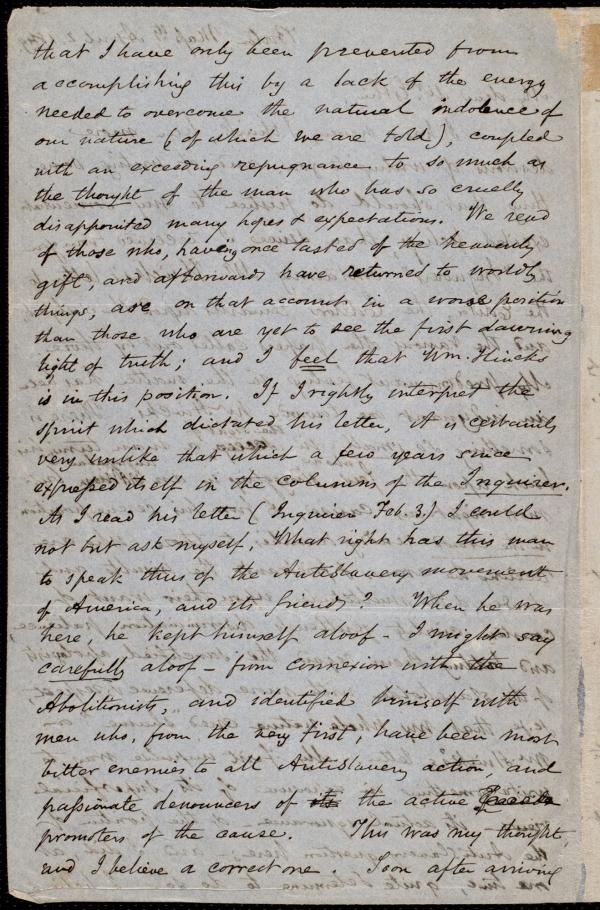 that I have only been prevented from
accomplishing this by a lack of the energy
needed to overcome the natural indolence of
our nature (of which we are told), coupled
with an exceeding repugnance to so much as
the thought of the man who has so cruelly
disappointed many hopes & expectations. We read
of those who, having once tasted of the heavenly
gift, and afterwards have returned to worldly
things, are on that account in a worse position
than those who are yet to see the first dawning
light of truth; and I feel that Wm. Hincks
is in this position. If I rightly interpret the
spirit which dictated his letter, it is certainly
very unlike that which a few years since
expressed itself in the columns of the Inquirer.
As I read his letter (Inquirer Feb. 3.) I could
not but ask myself, What right has this man
to speak thus of the AntiSlavery movement
of America, and its friends? When he was
here, he kept himself aloof - I might say
carefully aloof - from connexion with the
Abolitionists, and identified himself with
men who, from the very first, have been most
bitter enemies to all AntiSlavery action, and
passionate denouncers of its the active
promoters of the cause. This was my thought,
and I believe a correct one. Soon after arriving